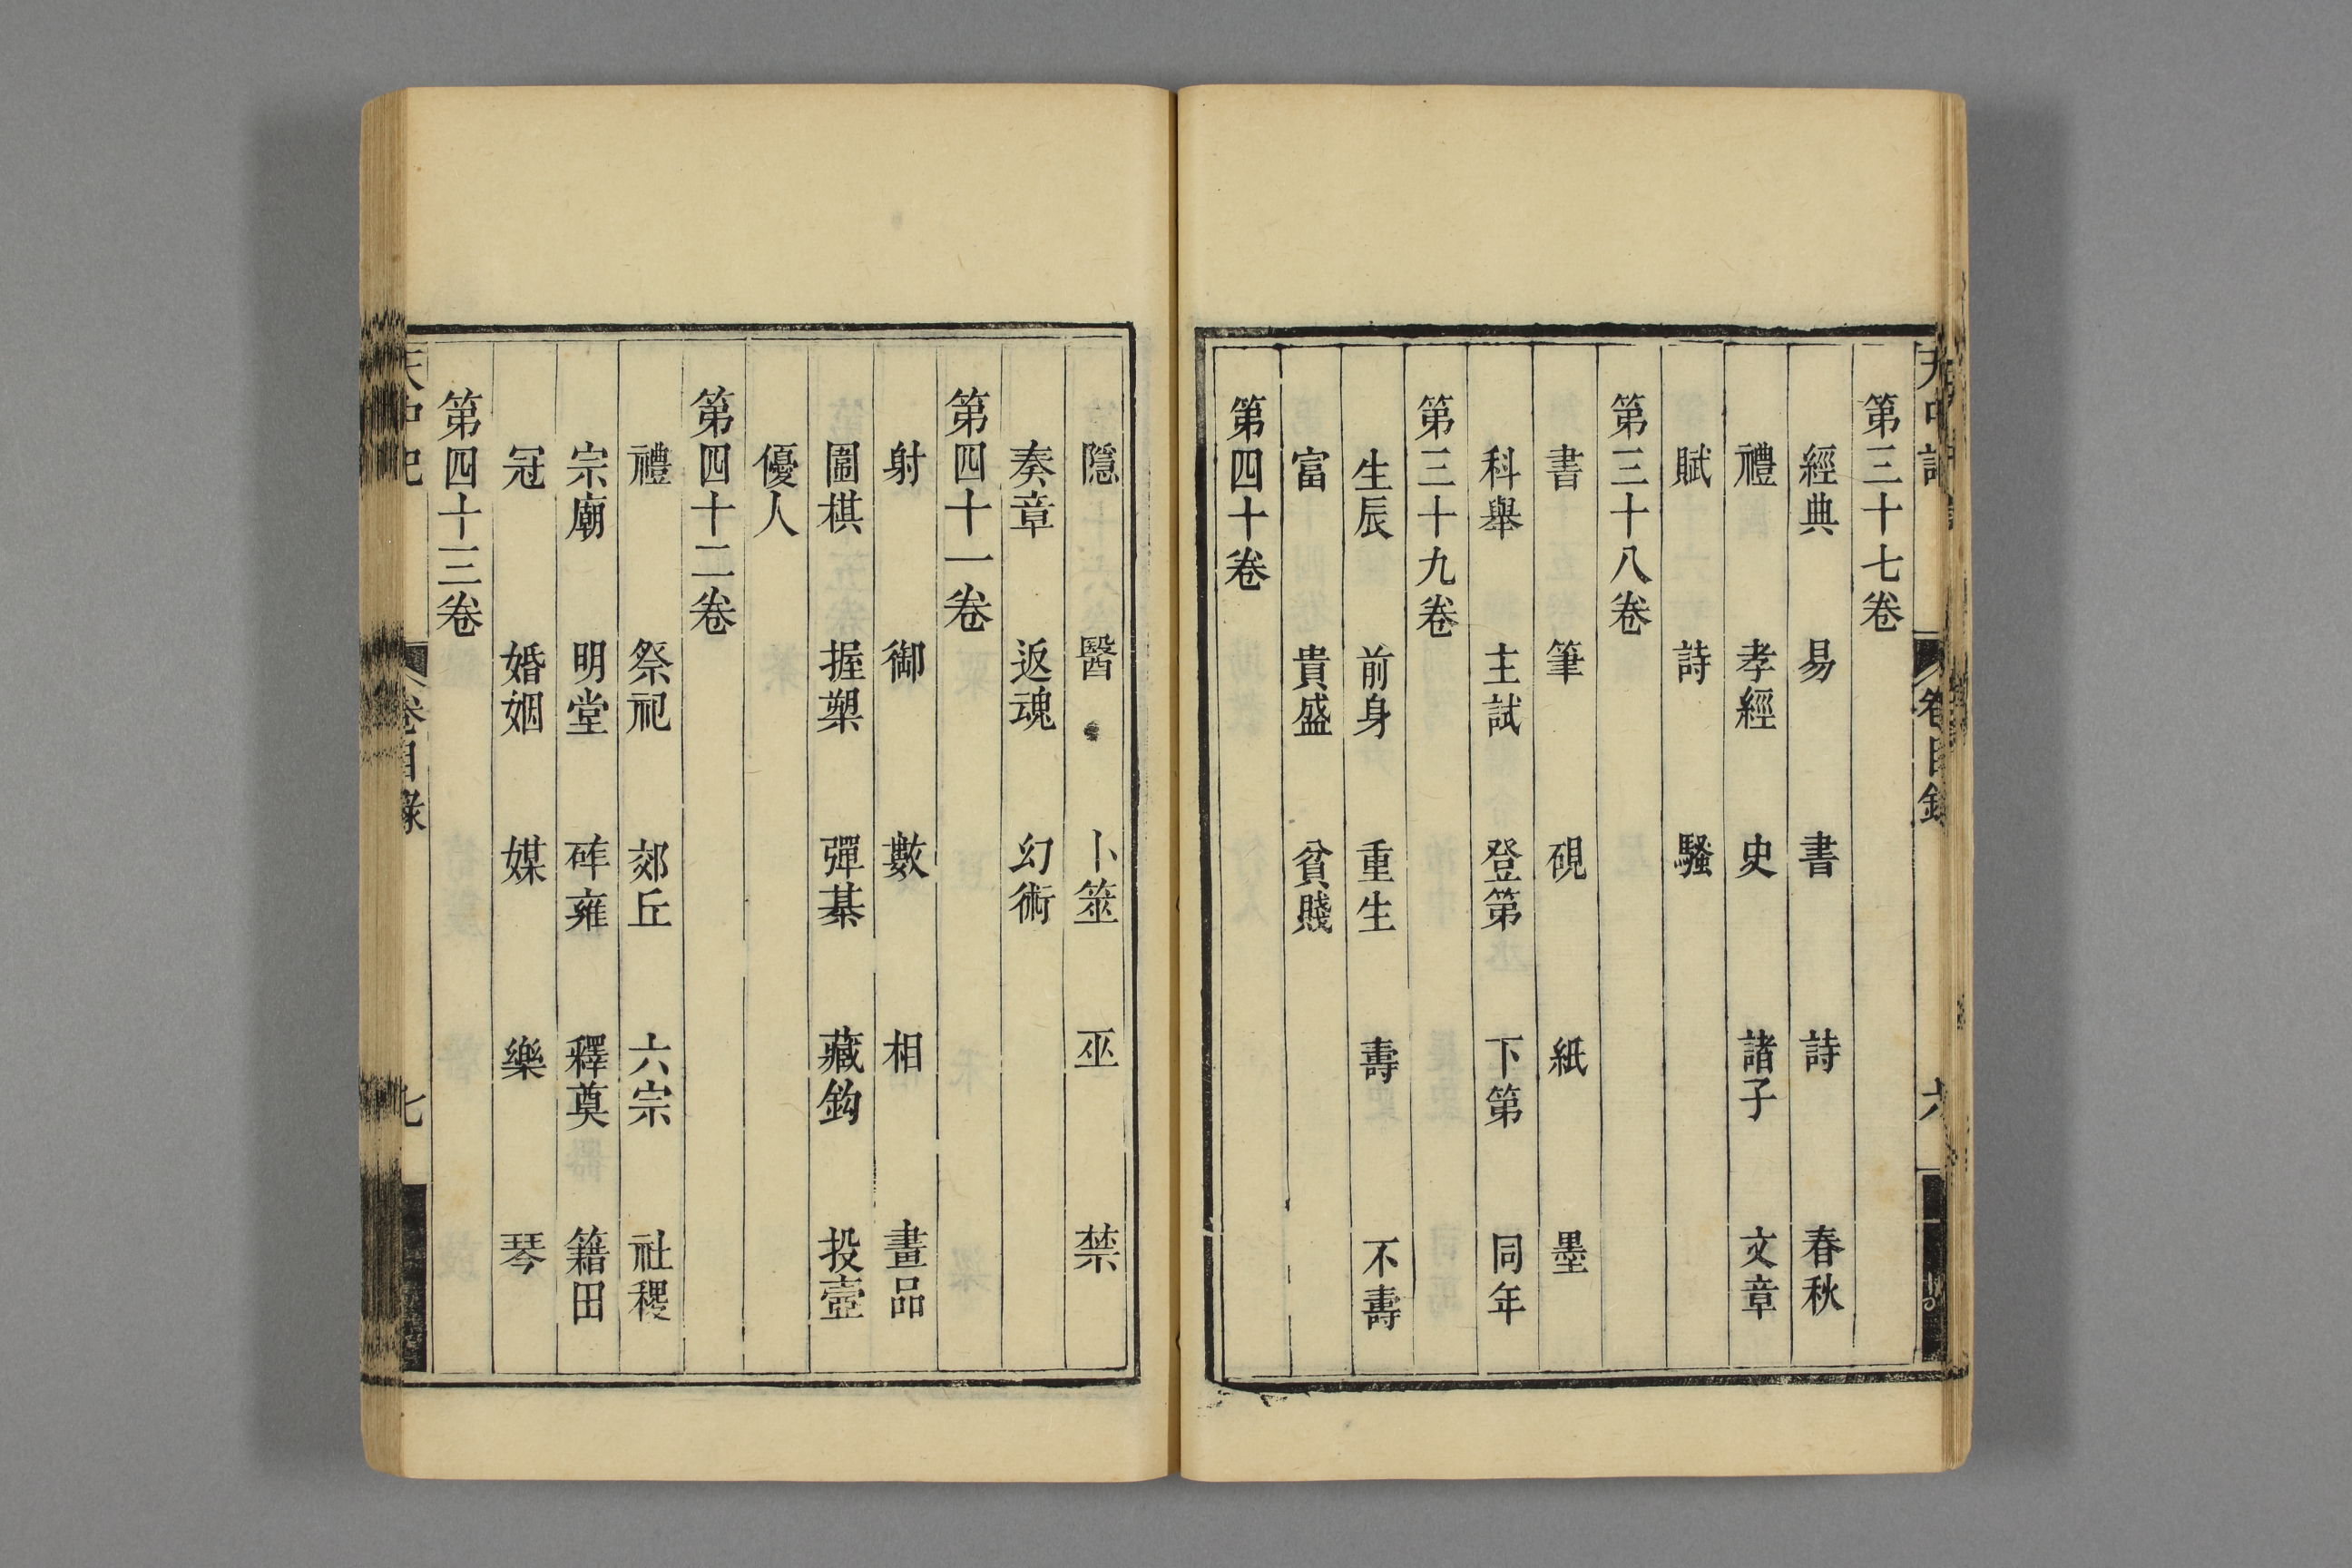 天中記
卷目錄
六
第三十七卷
經典 易 書 詩 春秋
禮 孝經 史 諸子 文章
賦 詩 騷
第三十八卷
書 筆 硯 紙 墨
科舉 主試 登第 下第 同年
第三十九卷
生辰 前身 重生 壽 不壽
富 貴盛 貧賤
第四十卷
隱 醫 卜筮 巫 禁
奏章 返魂 幻術
第四十一卷
射 御 數 相 畫品
圍棋 握槊 彈棊 藏鈎 投壺
優人
第四十二卷
禮 祭祀 郊丘 六宗 社稷
宗廟 明堂 辟雍 釋奠 籍田
冠 婚姻 媒 樂 琴
第四十三卷
天中記
卷目錄
七